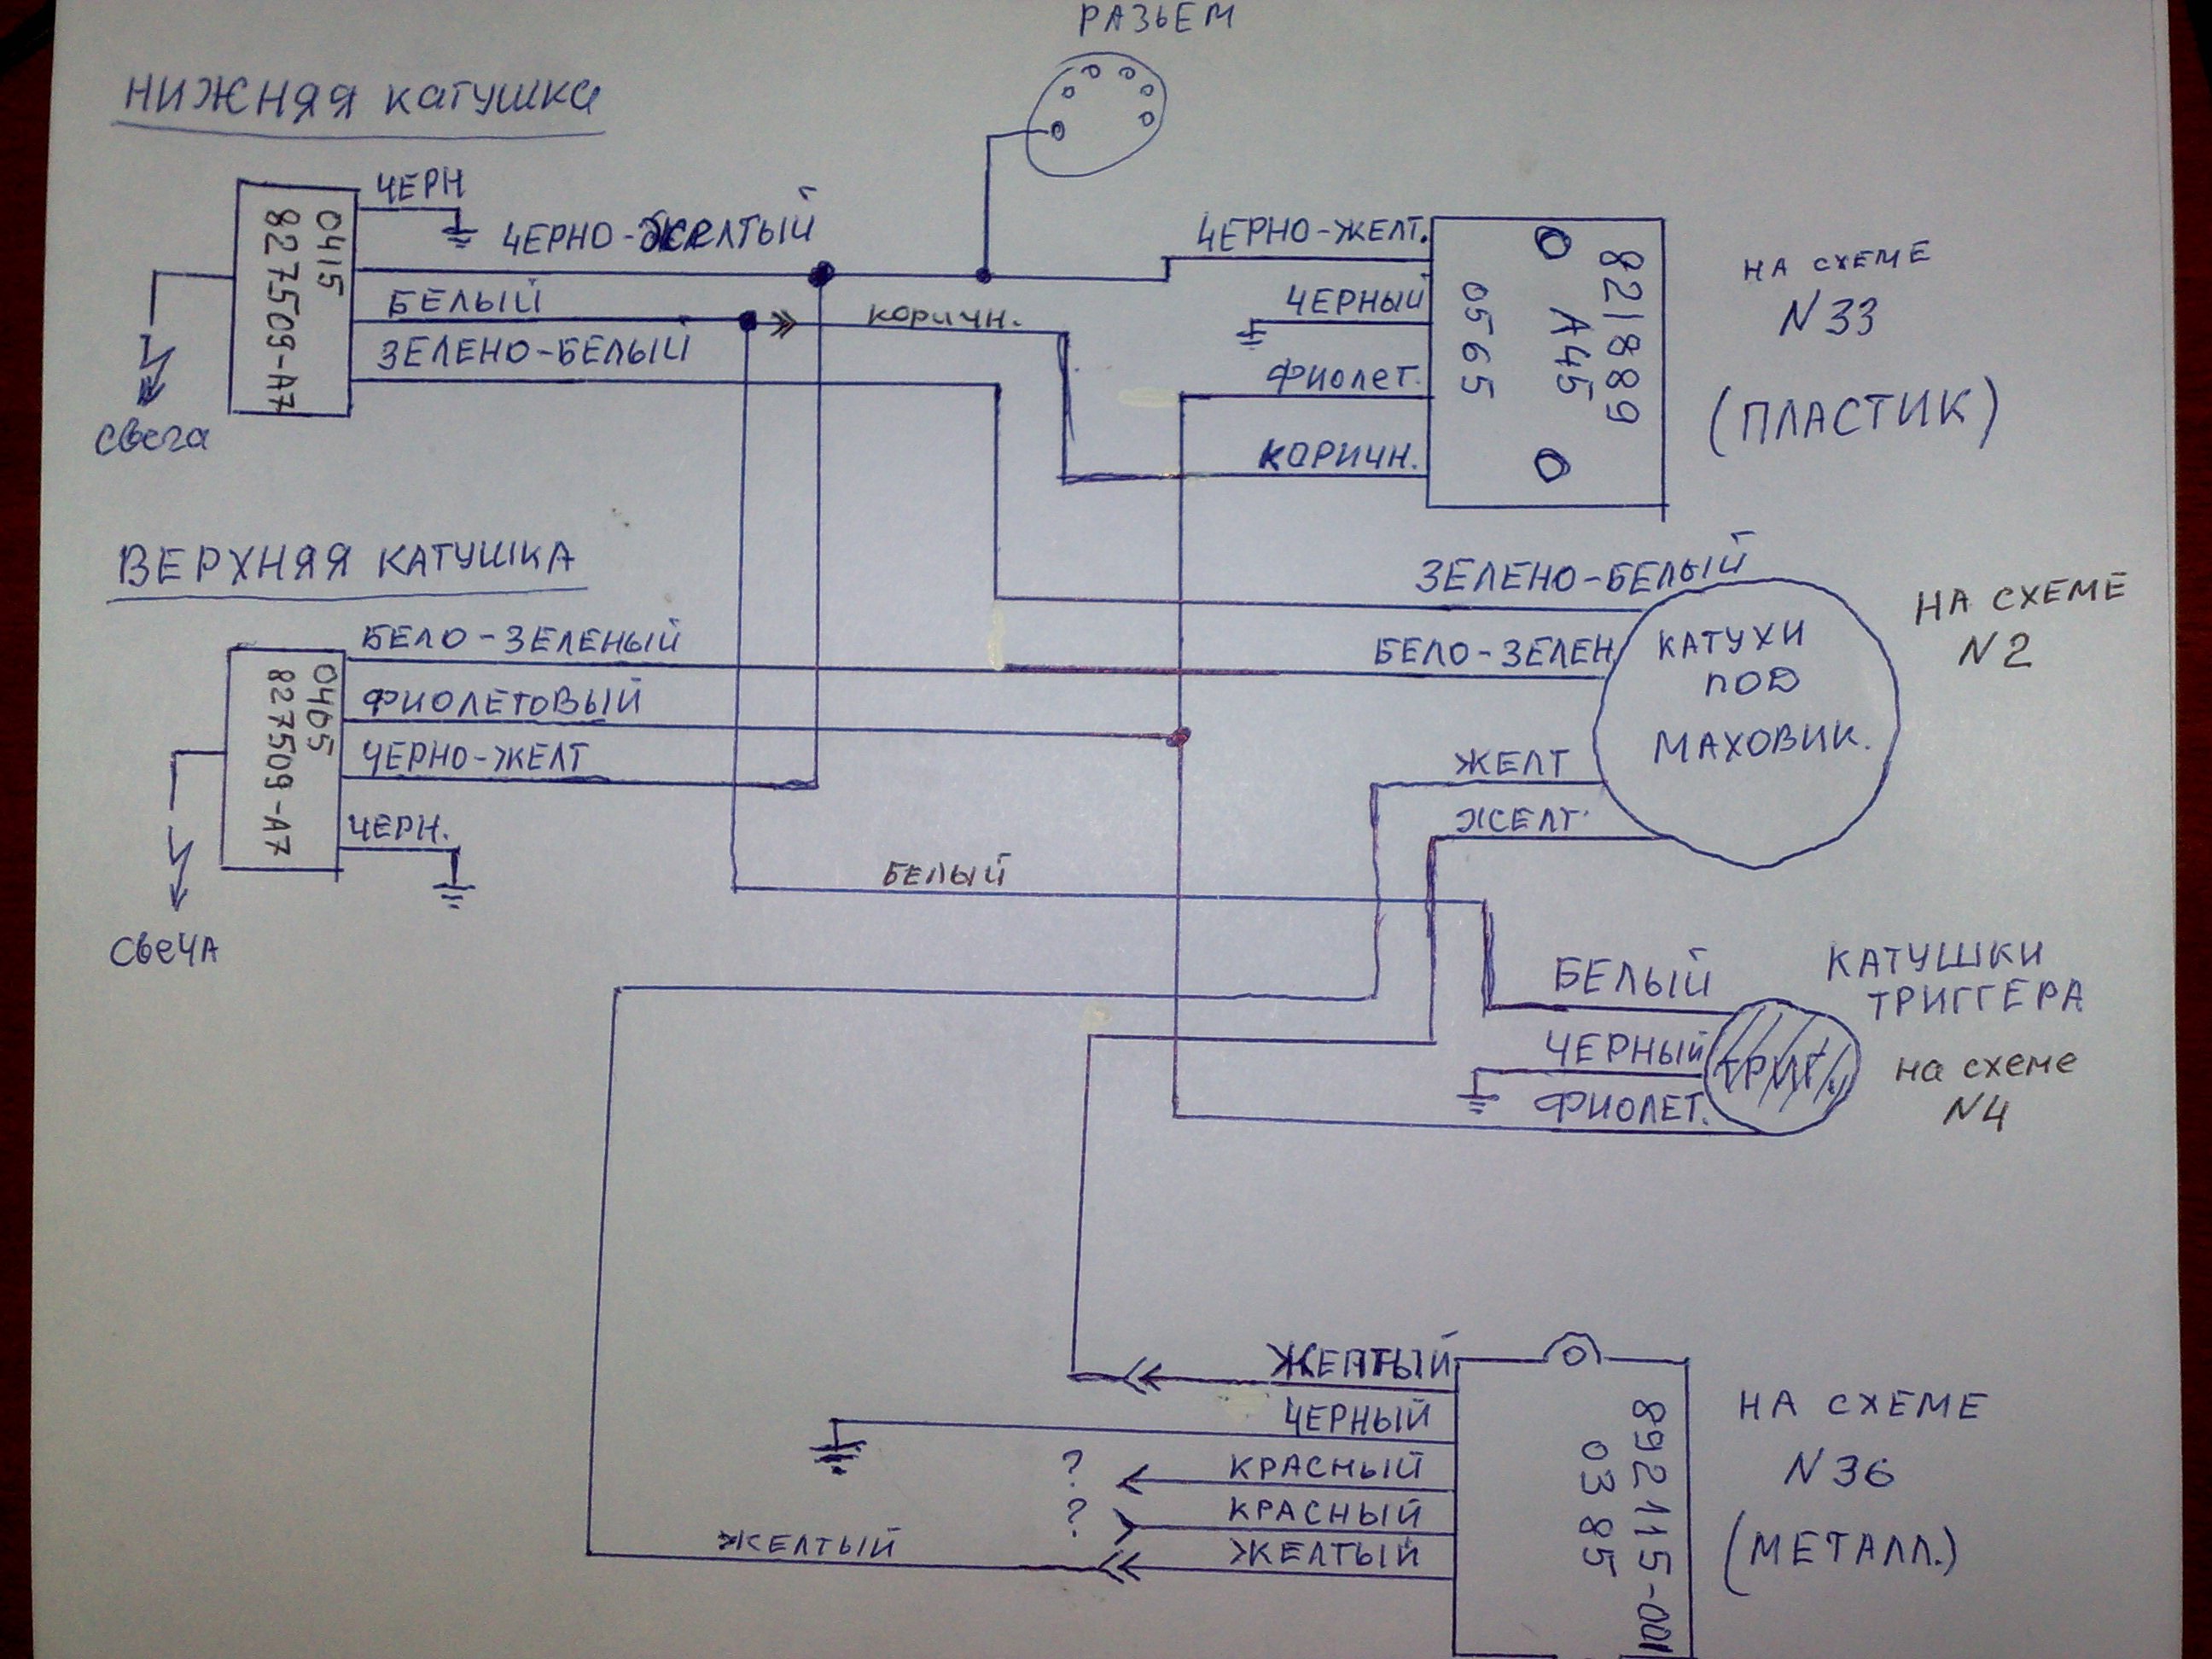 РАЗЬЕМ
НИЖНЯЯ КАТУШКА
ЧЕРН
ЧЕРНО-ЖЕЛТЫЙ
БЕЛЫЙ
ЗЕЛЕНО-БЕЛЫЙ
0415
827509-А7
СВЕЧА
КОРИЧН.
ЧЕРНО-ЖЕЛТ.
ЧЕРНЫЙ
ФИОЛЕТ.
КОРИЧН.
821889
А45
0565
НА СХЕМЕ
N33
(ПЛАСТИК)
ВЕРХНЯЯ КАТУШКА
БЕЛО-ЗЕЛЕНЫЙ
ФИОЛЕТОВЫЙ
ЧЕРНО-ЖЕЛТ
ЧЕРН.
0405
827509-А7
СВЕЧА
ЗЕЛЕНО-БЕЛЫЙ
БЕЛО-ЗЕЛЕН
ЖЕЛТ
ЖЕЛТ.
КАТУХИ
ПОД
МАХОВИК.
НА СХЕМЕ
N2
БЕЛЫЙ
БЕЛЫЙ
ЧЕРНЫЙ
ФИОЛЕТ.
КАТУШКИ
ТРИГГЕРА
НА СХЕМЕ
N4
ЖЕЛТЫЙ
ЧЕРНЫЙ
? КРАСНЫЙ
? КРАСНЫЙ
ЖЕЛТЫЙ ЖЕЛТЫЙ
892115-001
0385
НА СХЕМЕ
N36
(МЕТАЛЛ.)